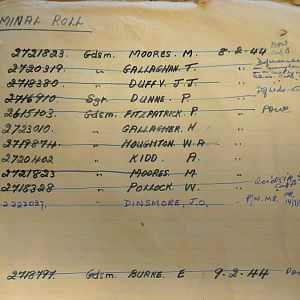 MINAL ROLL
2721823. Gdsm. MOORES. M. 8.2.44
2720319. " GALLAGHAN. T. "
2718380 " DUFFY. J.J. "
2716910 Sgr. DUNNE. P "
2615103 Gdsm. FITZPATRICK. P " POW
2723010. " GALLAGHER. H "
2719874 " HOUGHTON. W.A "
2720402 " KIDD. A. "
2721823 " MOORES. M. "
2718328 " POLLOCK. W. "
DINSMORE, J.O. "
2718797. Gdsm. BURKE. E 9.2.44